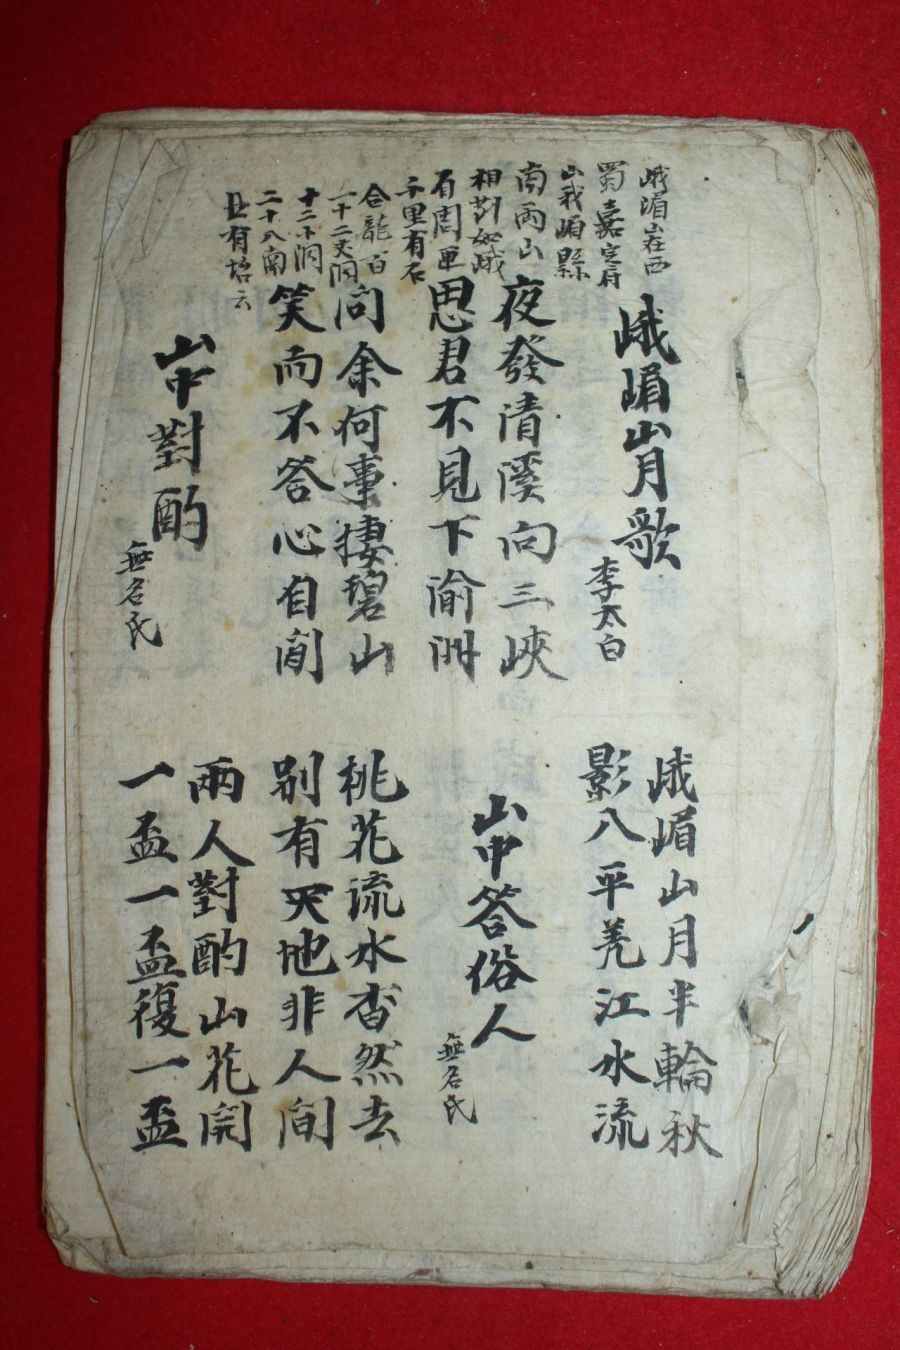 峨嵋山在西
蜀嘉定府
山峩嵋縣
南兩山
相對如峨
眉周匝
千里有石
合龍百
一十二大洞
十二小洞
二十八南
北有坮云
峨嵋山月歌
李太白
峨嵋山月半輪秋
影入平羌江水流
夜發清溪向三峽
思君不見下渝州
山中答俗人
無名氏
問余何事捿碧山
笑而不答心自閑
桃花流水杳然去
別有天地非人間
山中對酌
無名氏
兩人對酌山花開
一盃一盃復一盃